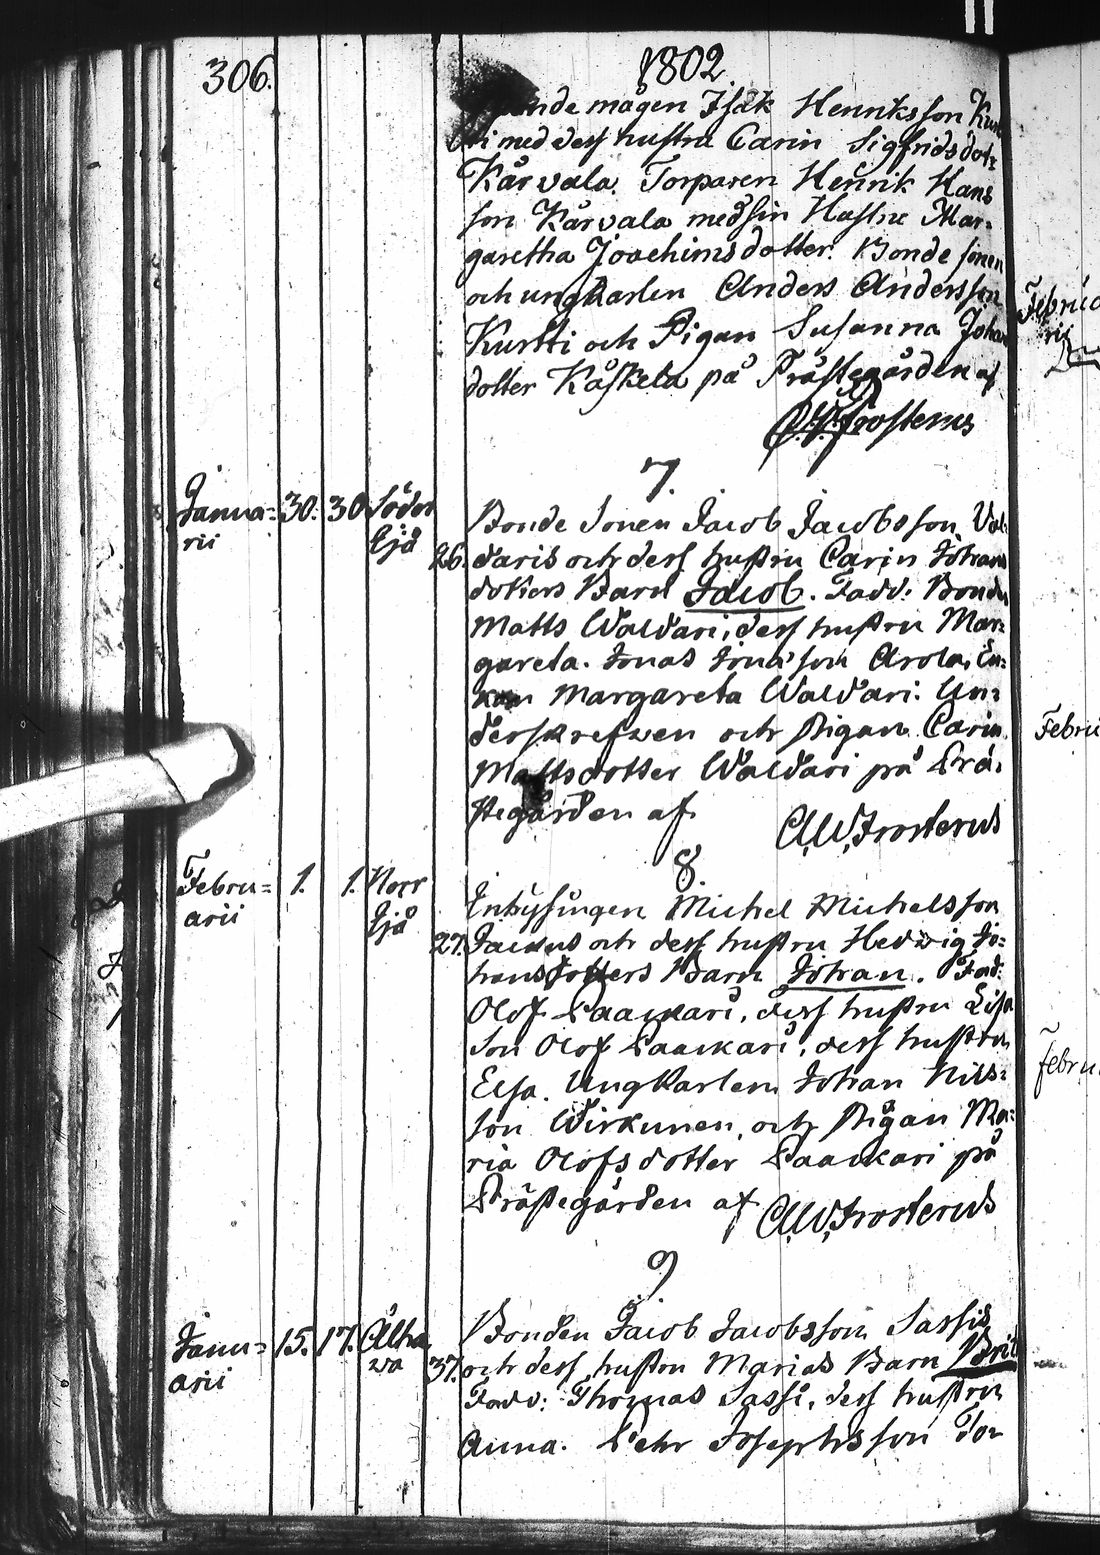 306.
1802
Bonde mågen Isak Henriksson Kur
tti med dess hustru Carin Sigfridsdot:
Kårvala. Torparen Henrik Hans
son Kårvala med sin Hustru Mar-
garetha Joachimsdotter. Bonde sonen
och ungkarlen Anders Andersson
Kurtti och Pigan Susanna Johan
dotter Kåskela på Prästegården af
Frosterus
7.
Janua= 30. 30. Söder Bonde Sonen Jacob Jacobsson Val
rii Ejä 26. daris och dess hustru Carin Johans
dotters Barn Jacob. Fadd: Bonden
Matts Waldari, dess hustru Mar=
gareta. Jonas Jonasson Arola, En=
kan Margareta Waldari. Un=
derskrefwen och Pigan Carin
Mattsdotter Waldari på Prä=
stegården af
A.W. Frosterus
8.
Febru= 1. 1. Norr Inhysingen Michel Michelsson
arii Ejä 27. och dess hustru Hedwig Jo=
hansdotters Barn Johan. Fad:
Olof Paavari, dess hustru Lisa
Son Olof Paavari, dess hustru
Elsa. Ungkarlen Johan Nils=
son Wirkunen, och Pigan Ma=
ria Olofsdotter Paavari på
Prästegården af A.W. Frosterus
9
Janu= 15. 17. Alha Bonden Jacob Jacobsson Sassis
arii va 37. och dess hustru Marias Barn Brit
Fadd: Thomas Sassi, dess hustru
Anna. Pehr Josephsson To=
Februa
rii
Febru
Febru